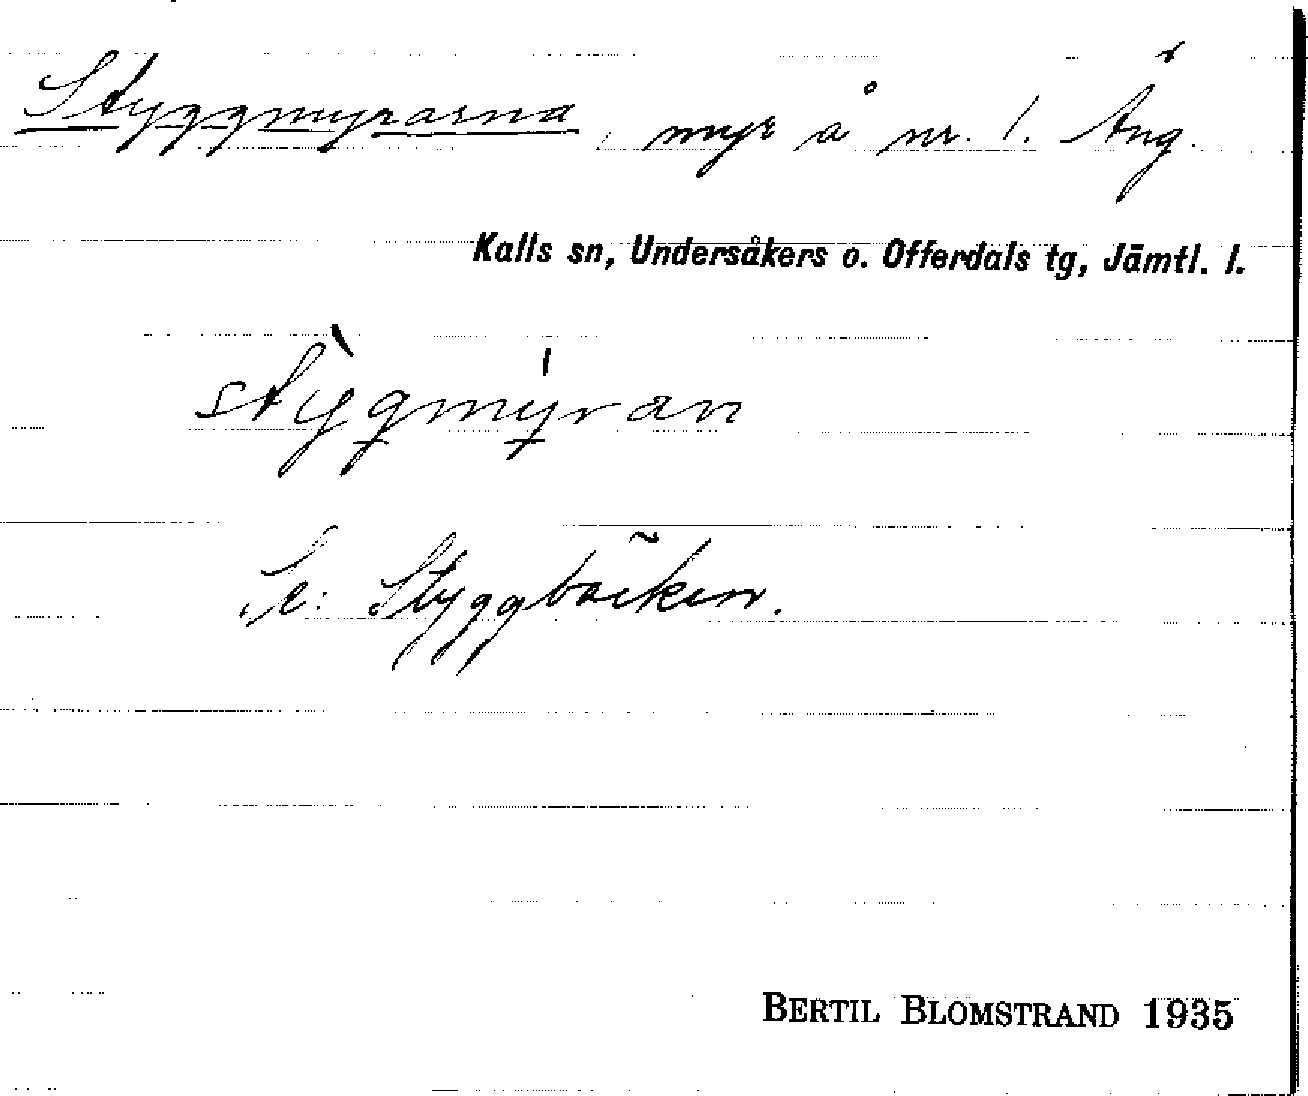 Styggmyrarna, myr å nr. 1. Äng.
Kalls sn, Undersåkers o. Offerdals tg, Jämtl. l.
stỳgmýran
Se: Styggbäcken.
BERTIL BLOMSTRAND 1935